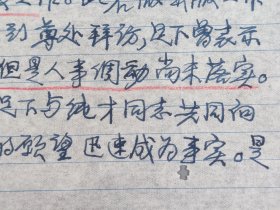 到尊处拜访，足下曾表示
但是人事调动尚未落实。
足下与纯才同志共同向
的愿望迅速成为事实。是